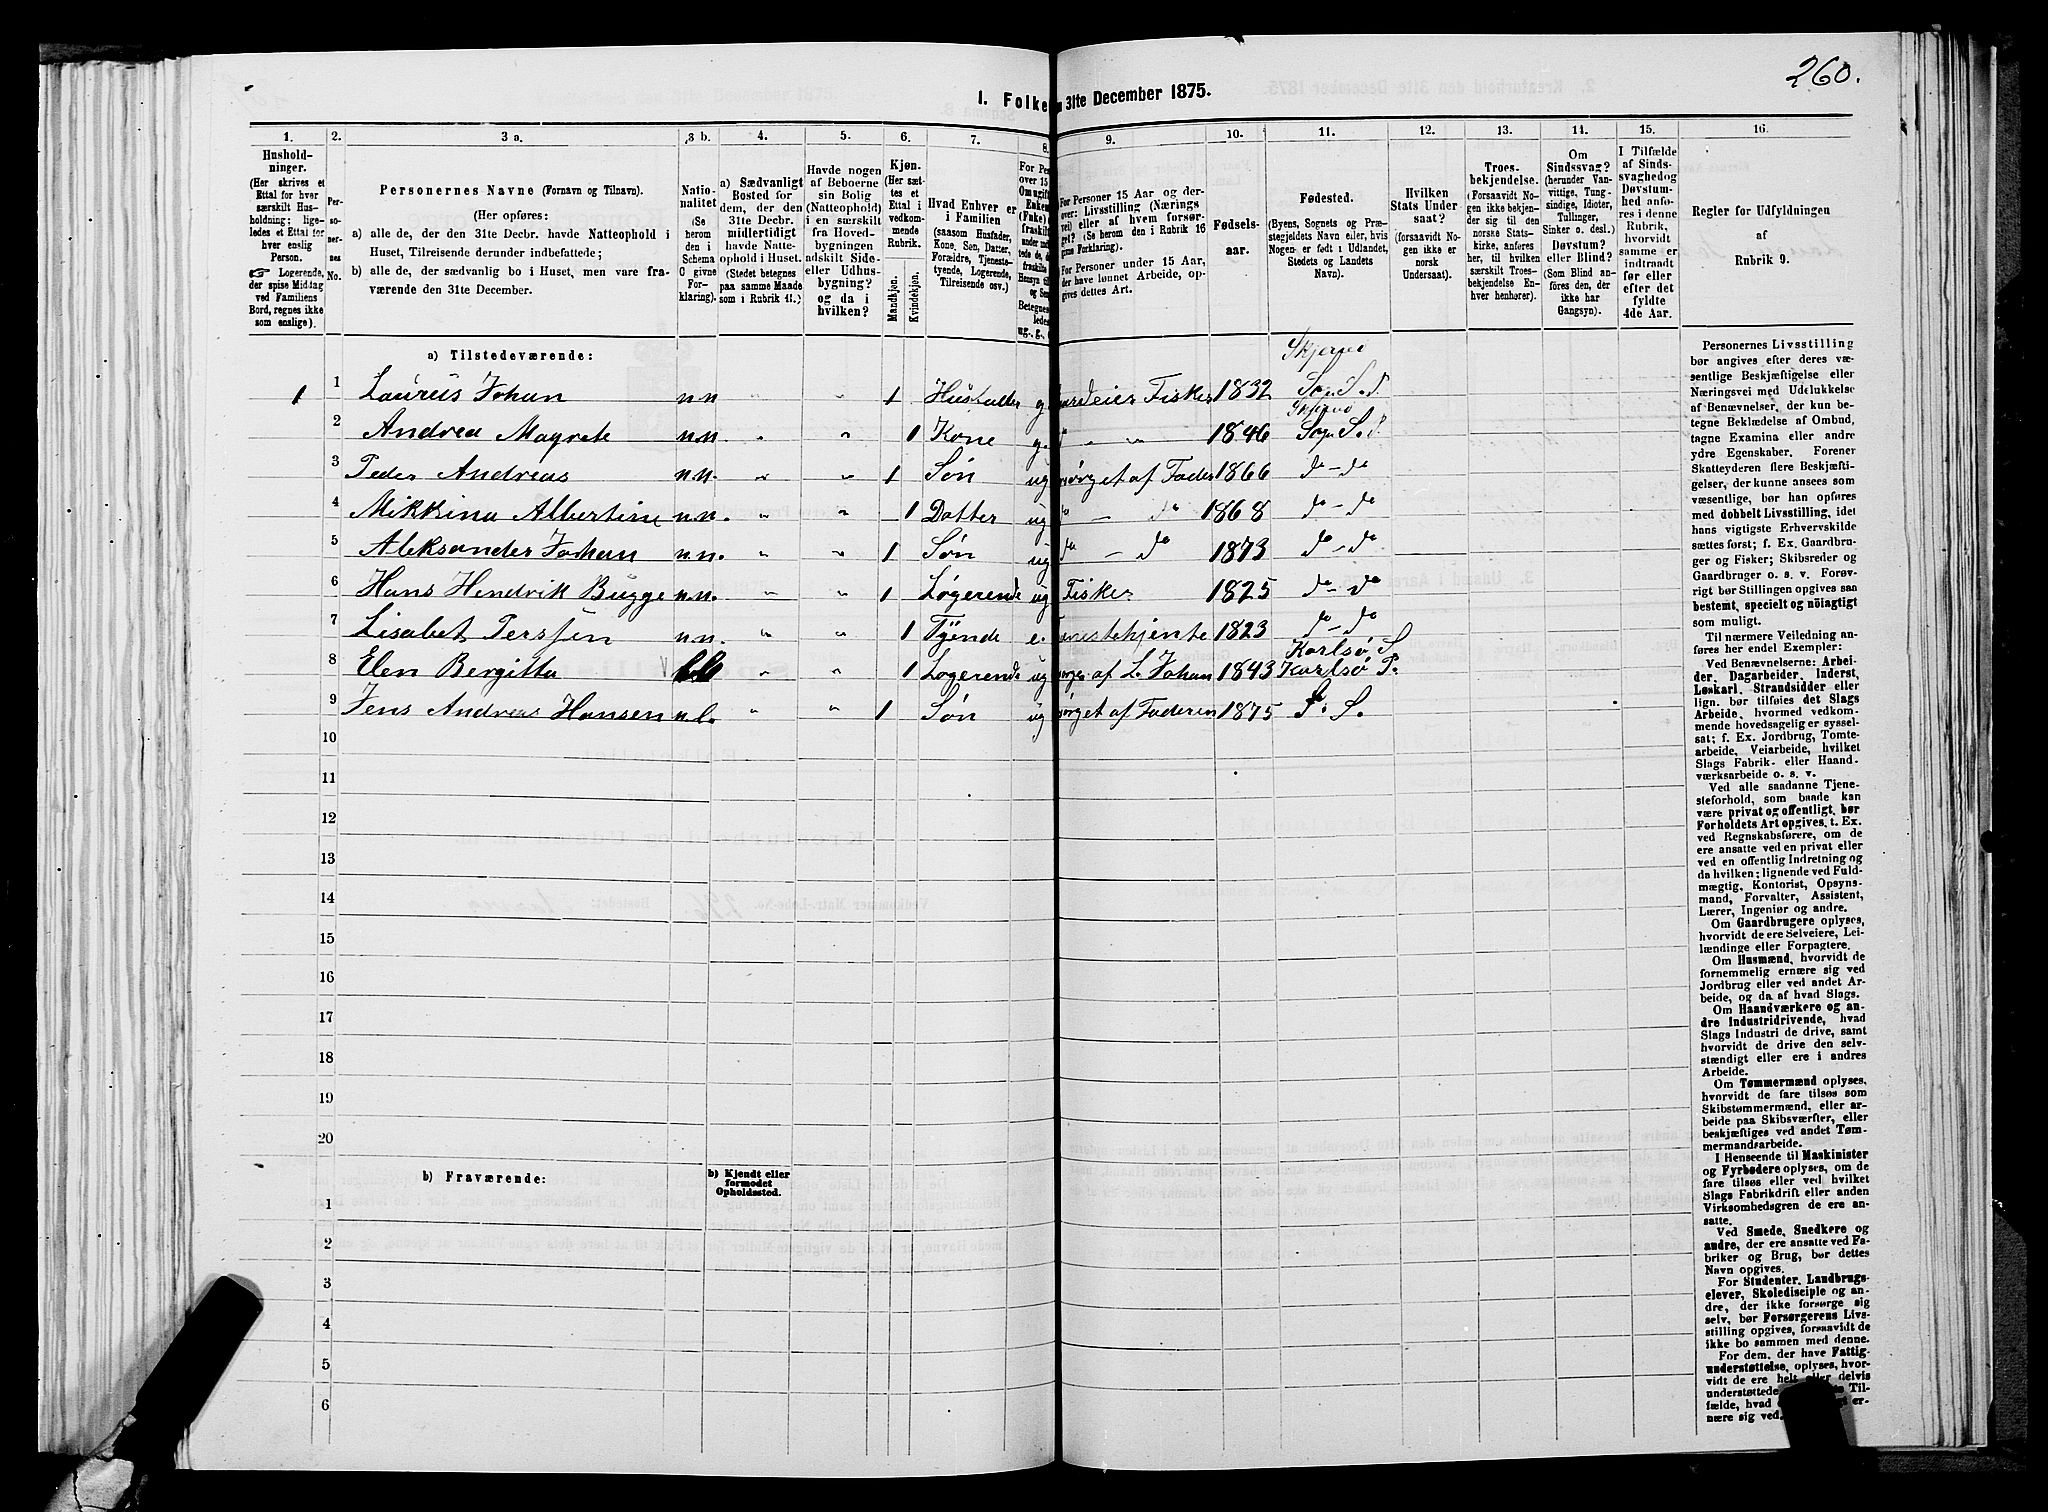 260.
1. Folke
n 31te December 1875.
1. 2. 3 a. 3 b. 4. 5. 6. 7. 8. 9. 10. 11. 12. 13. 14. 15. 16.
Hushold-
ninger.
(Her skrives et
Ettal for hver
særskilt Hus-
holdning; lige-
ledes et Ettal for
hver enslig
Person.
☞ Logerende,
der spise Middag
ved Familiens
Bord, regnes ikke
som enslige).
Per-
so-
ner-
nes
No.
Personernes Navne (Fornavn og Tilnavn).
(Her opføres:
a) alle de, der den 31te Decbr. havde Natteophold i
Huset, Tilreisende derunder indbefattede;
b) alle de, der sædvanlig bo i Huset, men vare fra-
værende den 31te December.
Natio-
nalitet
(Se
herom
den i
Schema
C givne
For-
klaring).
a) Sædvanligt
Bosted for
dem, der den
31te Decbr.
midlertidigt
havde Natte-
ophold i Huset.
(Stedet betegnes
paa samme Maade
som i Rubrik 11.)
Havde nogen
af Beboerne
sin Bolig
(Natteophold)
i en særskilt
fra Hoved-
bygningen
adskilt Side-
eller Udhus-
bygning?
og da i
hvilken?
Kjøn.
(Her sæt-
tes et
Ettal i
vedkom-
mende
Rubrik.
Mandkjøn.
Kvindekjøn.
Hvad Enhver er
i Familien
(saasom Husfader,
Kone, Søn, Datter,
Forældre, Tjeneste-
tyende, Logerende,
Tilreisende osv.)
For Personer 15 Aar og der-
over: Livsstilling (Nærings
vei) eller af hvem forsør-
get? (Se herom den i Rubrik 16
givne Forklaring.)
For Personer under 15 Aar,
der have lønnet Arbeide, op-
gives dettes Art.
Fødsels-
aar.
Fødested.
(Byens, Sognets og Præ-
stegjeldets Navn eller, hvis
Nogen er født i Udlandet,
Stedets og Landets
Navn).
Hvilken
Stats Under
saat?
(forsaavidt No-
gen ikke er
norsk
Undersaat).
Troes-
bekjendelse.
(Forsaavidt No-
gen ikke bekjen-
der sig til den
norske Stats-
kirke, anføres
her, til hvilken
særskilt Troes-
bekjendelse En-
hver henhører).
Om
Sindssvag?
(herunder Van-
vittige, Tung-
sindige, Idioter,
Tullinger,
Sinker o. desl.)
Døvstum?
eller Blind?
(Som Blind an-
føres den, der
ikke har
Gangsyn).
I Tilfælde
af Sinds-
svaghed og
Døvstum-
hed anfø-
res i denne
Rubrik,
hvorvidt
samme er
indtraadt
før eller
efter det
fyldte
4de Aar.
Regler for Udfyldningen
af
Rubrik 9.
a) Tilstedeværende:
Skjervø
1 1 Laurus Johan n.n „ „ 1 Husfader g. Gardeier Fisker 1832 Sogn S. P.
Skjervø
2 Andrea Magrete n.n. „ „ 1 Kone g. do „ „ 1846 Sogn S. P.
3 Peder Andreas n.n. „ „ 1 Søn ug forsørget af Fader 1866 do - do
4 Mikkina Albertine n.n. „ „ 1 Datter ug do - do 1868 do - do
5 Aleksander Johan n.n. „ „ 1 Søn ug do - do 1873 do - do
6 Hans Hendrik Bugge n.n. „ „ 1 Løgerende ug Fisker 1825 do - do
7 Lisabet Perssen n.n. „ „ 1 Tyende e. 1823 do - do
Karlsø S
8 Elen Bergitta „ „ 1 Logerende ug af L. Johan 1843 Karlsø P.
9 Jens Andreas Hansen „ „ 1 Søn ug forsørget af Faderen 1875 S. S.
10
11
12
13
14
15
16
17
18
19
20
b) Fraværende:
b) Kjendt eller
formodet
Opholdssted.
1
2
3
4
5
6
Personernes Livsstilling
bør angives efter deres væ-
sentlige Beskjæftigelse eller
Næringsvei med Udelukkelse
af Benævnelser, der kun be-
tegne Beklædelse af Ombud,
tagne Examina eller andre
ydre Egenskaber. Forener
Skatteyderen flere Beskjæfti-
gelser, der kunne ansees som
væsentlige, bør han opføres
med dobbelt Livsstilling, idet
hans vigtigste Erhvervskilde
sættes først; f. Ex. Gaardbru-
ger og Fisker; Skibsreder og
Gaardbruger o. s. v. Forøv-
rigt bør Stillingen opgives saa
bestemt, specielt og nøiagtigt
som muligt.
Til nærmere Veiledning an-
føres her endel Exempler:
Ved Benævnelserne: Arbei-
der, Dagarbeider, Inderst,
Løskarl, Strandsidder eller
lign. bør tilføies det Slags
Arbeide, hvormed vedkom-
mende hovedsagelig er syssel-
sat; f. Ex. Jordbrug, Tomte-
arbeide, Veiarbeide, hvilket
Slags Fabrik- eller Haand-
værksarbeide o. s. v.
Ved alle saadanne Tjene-
steforhold, som baade kan
være privat og offentligt, bør
Forholdets Art opgives, t. Ex.
ved Regnskabsførere, om de
ere ansatte ved en privat eller
ved en offentlig Indretning og
da hvilken; lignende ved Fuld-
mægtig, Kontorist, Opsyns-
mand, Forvalter, Assistent,
Lærer, Ingeniør og andre.
Om Gaardbrugere oplyses,
hvorvidt de ere Selveiere, Lei-
lændinge eller Forpagtere.
Om Husmænd, hvorvidt de
fornemmelig ernære sig ved
Jordbrug eller ved andet Ar-
beide, og da af hvad Slags.
Om Haandværkere og an-
dre Industridrivende, hvad
Slags Industri de drive, samt
hvorvidt de drive den selv-
stændigt eller ere i andres
Arbeide.
Om Tømmermænd oplyses,
hvorvidt de fare tilsøs som
Skibstømmermænd, eller ar-
beide paa Skibsværfter, eller
beskjæftiges ved andet Tøm-
mermandsarbeide.
I Henseende til Maskinister
og Fyrbødere oplyses, om de
fare tilsøs eller ved hvilket
Slags Fabrikdrift eller anden
Virksomhedsgren de ere an-
satte.
Ved Smede, Snedkere og
andre, der ere ansatte ved Fa-
briker og Brug, bør dettes
Navn opgives.
For Studenter, Landbrugs-
elever, Skoledisciple og an-
dre, der ikke forsørge sig
selv, bør Forsørgerens Livs-
stilling opgives, forsaavidt de
ikke bo sammen med denne.
For dem, der have Fattig-
understøttelse, oplyses, hvor-
vidt de ere helt eller delvis
understøttede
fælde, hvad
nære sig ved.